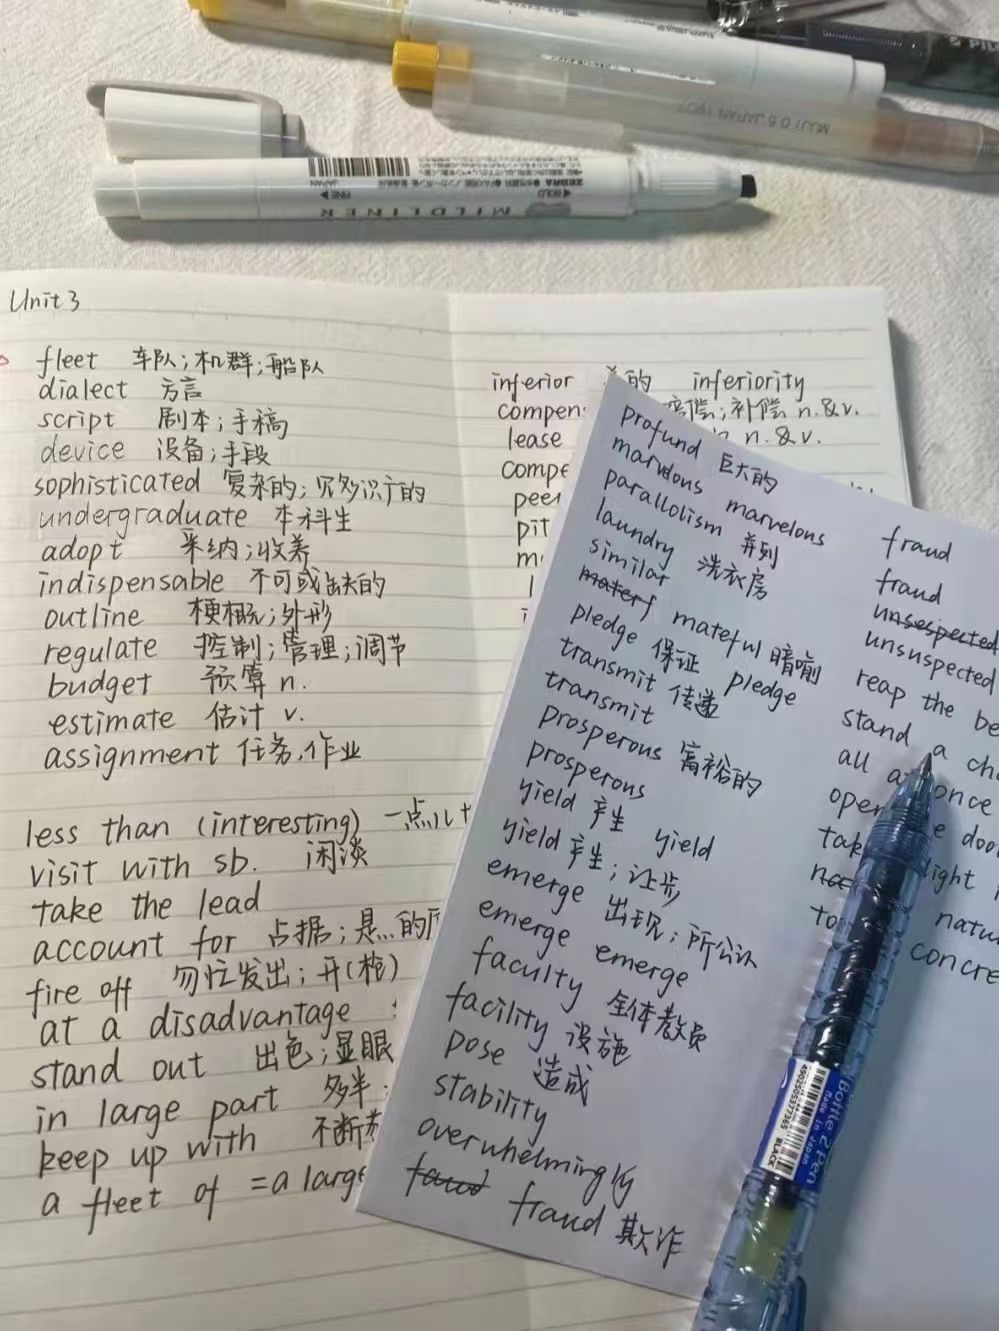 MUJI 0.5 JAPAN
BOLD
MILDLINER
FINE
JAPAN
Unit 3
fleet 车队;机群;船队
dialect 方言
script 剧本;手稿
device 设备;手段
sophisticated 复杂的;见多识广的
undergraduate 本科生
adopt 采纳;收养
indispensable 不可或缺的
outline 梗概;外形
regulate 控制;管理;调节
budget 预算 n.
estimate 估计 v.
assignment 任务,作业
less than (interesting) 一点儿
visit with sb. 闲谈
take the lead
account for 占据;是…的
fire off 匆忙发出;开(枪)
at a disadvantage
stand out 出色;显眼
in large part 多半
keep up with 不断
a fleet of = a large
inferior 的 inferiority
compen 赔偿;补偿 n.&v.
lease n.&v.
compe
peer
pit
profund 巨大的
marvdous marvelous
parallolism 并列
laundry 洗衣房
similar
materf mateful 暗喻
pledge 保证 pledge
transmit 传递
transmit
prosperous 富裕的
prosperous
yield 产生 yield
yield 产生;让步
emerge 出现;所公认
emerge emerge
faculty 全体教员
facility 设施
pose 造成
stability
overwhelmingly
faud fraud 欺诈
fraud
fraud
unsespected
unsuspected
reap the be
stand a cha
all at once
open e doo
tak light
to natu
concre
Bottle 2 Pen
Made in Japan
4902505377365 BLACK